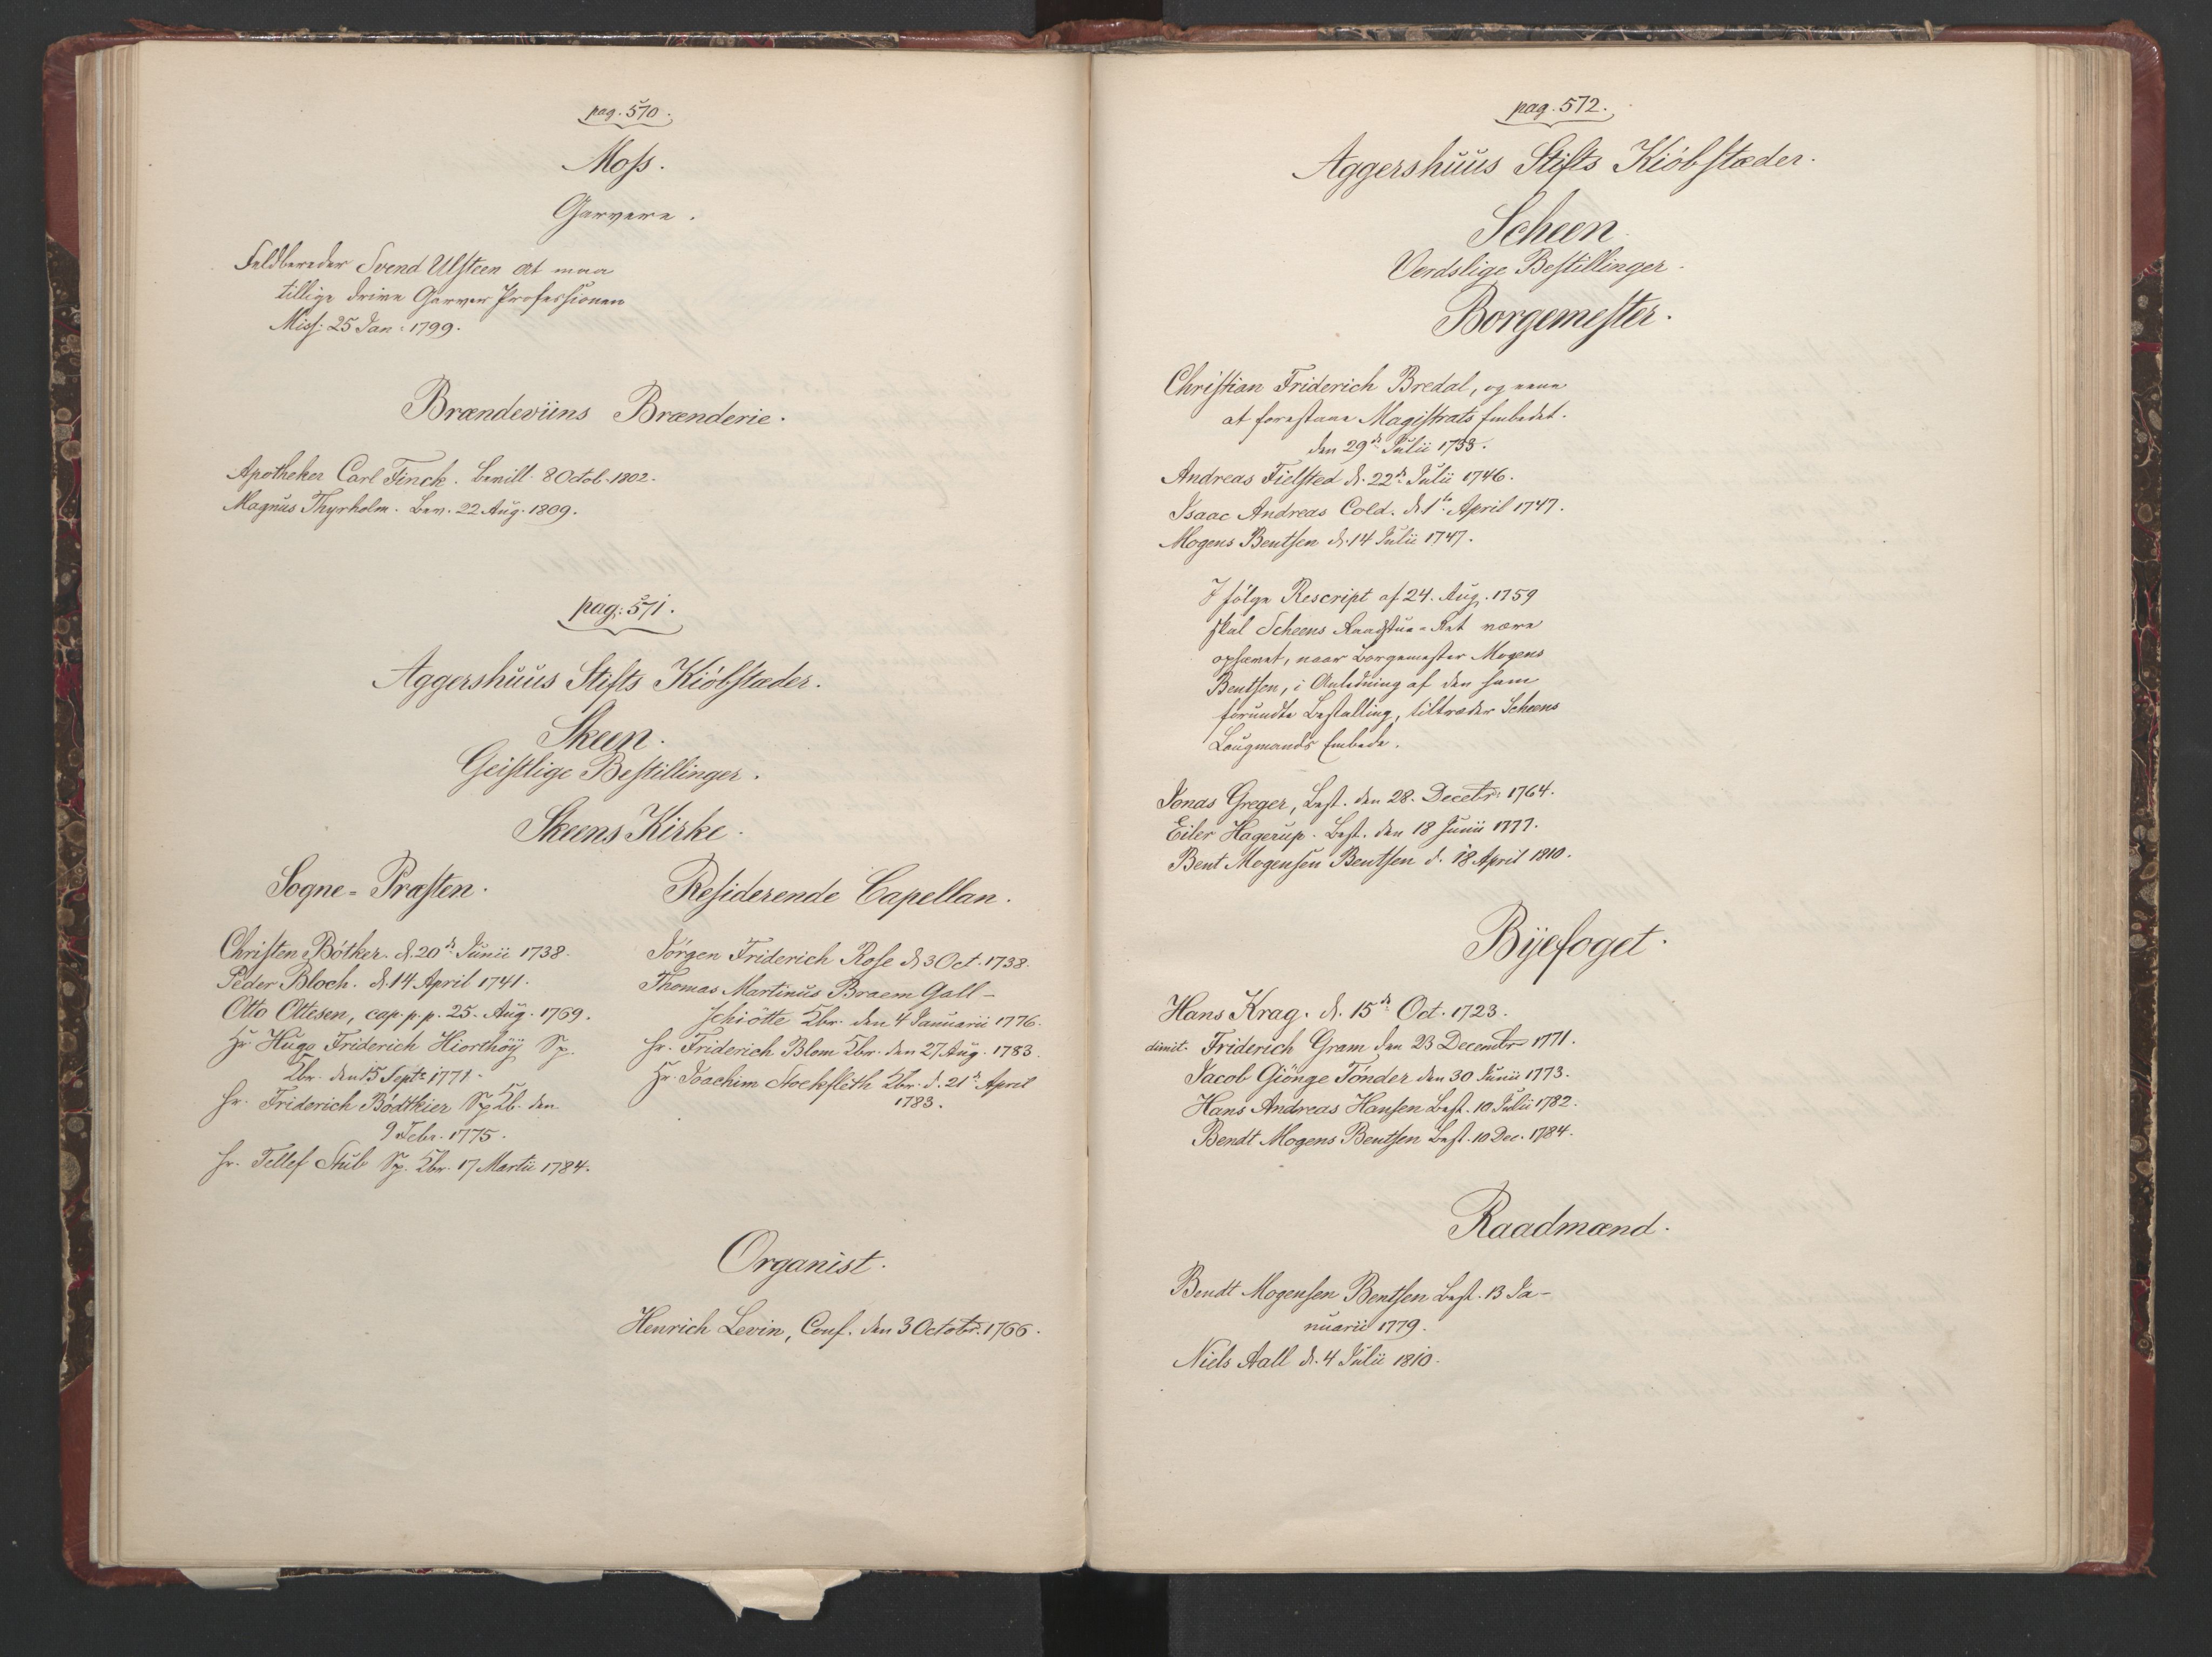 pag. 570.
Moss.
Garvere.
Feldbereder Svend Ulsteen at maa
tillige drive Garver Professionen
Miss: 25 Jan: 1799.
Brændeviins Brænderie.
Apotheker Carl Finck. Bevill. 8 Octob. 1802.
Magnus Thyrholm. Bev. 22 Aug. 1809.
pag: 571.
Aggershuus Stifts Kiöbstæder.
Skeen.
Geistlige Bestillinger.
Skeens Kirke.
Sogne-Præsten.
Christen Bötker. d. 20de Junii 1738.
Peder Bloch. d. 14 April 1741.
Otto Ottesen, cap. p. p. 25. Aug. 1769.
Hr. Hugo Friderich Hiorthöÿ Sp.
Kbr. den 15 Septr 1771.
Hr. Friderich Bödtkier Sp. Kb. den
9 Febr. 1775.
Hr. Tellef Stub Sp. Kbr. 17 Martii 1784.
Residerende Capellan.
Jörgen Friderich Rose d. 3 Oct. 1738.
Thomas Martinus Braem Gall-
schiötte Kbr. den 4 Januarii 1776.
Hr. Friderich Blom Kbr. den 27 Aug. 1783.
Hr. Joachim Stockfleth Kbr. d. 21de April
1783.
Organist.
Henrich Levin, Conf. den 3 Octobr. 1766.
pag. 572.
Aggershuus Stifts Kiöbstæder.
Scheen
Verdslige Bestillinger.
Borgemester.
Christian Friderich Bredal, og ene
at forestaae Magistrats Embedet.
den 29de Julii 1733.
Andreas Fielsted d. 22de Julii 1746.
Isaac Andreas Cold. d. 1te April 1747.
Mogens Bentsen d. 14 Julii 1747.
I fölge Rescript af 24. Aug. 1759
skal Scheens Raadstue-Ret være
ophævet, naar Borgemester Mogens
Bentsen, i Anledning af den ham
forundte Bestalling, tiltræder Scheens
Laugmands Embede.
Jonas Greger, Best. den 28. Decebr: 1764.
Eiler Hagerup. Best. den 18 Junii 1777.
Bent Mogensen Bentsen d. 18 April 1810.
Bÿefoget.
Hans Krag. d. 15de Oct. 1723.
dimit. Friderich Gram den 23 Decembr 1771.
Jacob Giönge Tönder den 30 Junii 1773.
Hans Andreas Hansen Best. 10 Julii 1782.
Bendt Mogens Bentsen Best. 10 Dec. 1784.
Raadmænd.
Bendt Mogensen Bentsen Best. 13 Ja-
nuarii 1779.
Niels Aall d. 4 Julii 1810.